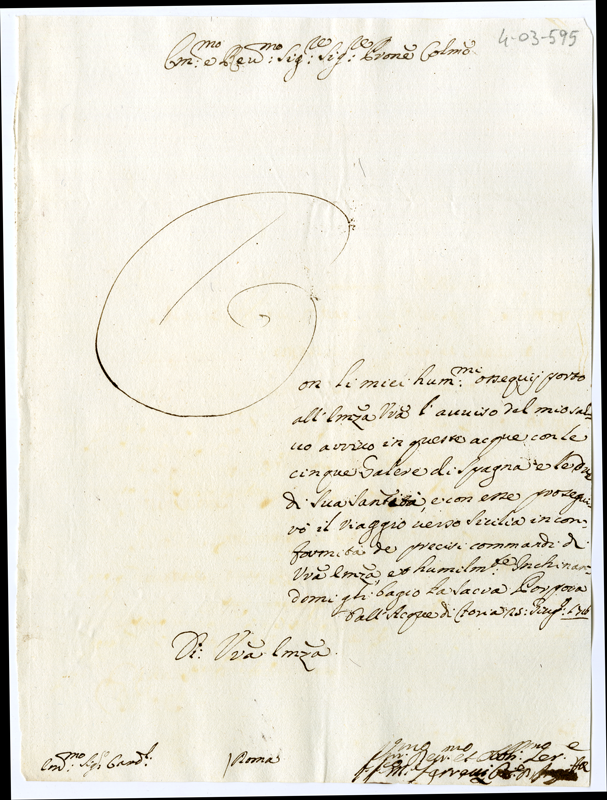 4-03-595
Em:mo e Reu:mo Sig:re Sig:re Prone Colmo
Con li miei hum:mi ossequij porto
all'Emza Vra l'auuiso del mio sal-
uo arriuo in queste acque con le
cinque Galere di Spagna e le due
di Sua Santità, e con esse prosegui-
rò il viaggio uerso Sicilia in con-
formità de precisi commandi di
Vra Emza et humilm:te Inchinan-
domi gli bagio la sacra Porpora
Dall'Acque di 25: Giug:o
Di Vra Emza
Sig:r Card:l
Roma